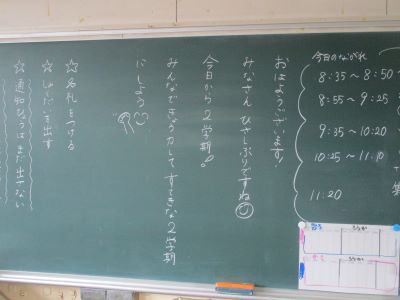 今日のながれ
8:35〜8:50
8:55〜9:25
9:35〜10:20
10:25〜11:10
11:20
おはようございます!
みなさん ひさしぶりですね
今日から2学期!
みんなできょう力して、すてきな2学期
にしよう
☆名札をつける
☆しゅくだいを出す
☆通知ひょうは まだ出さない